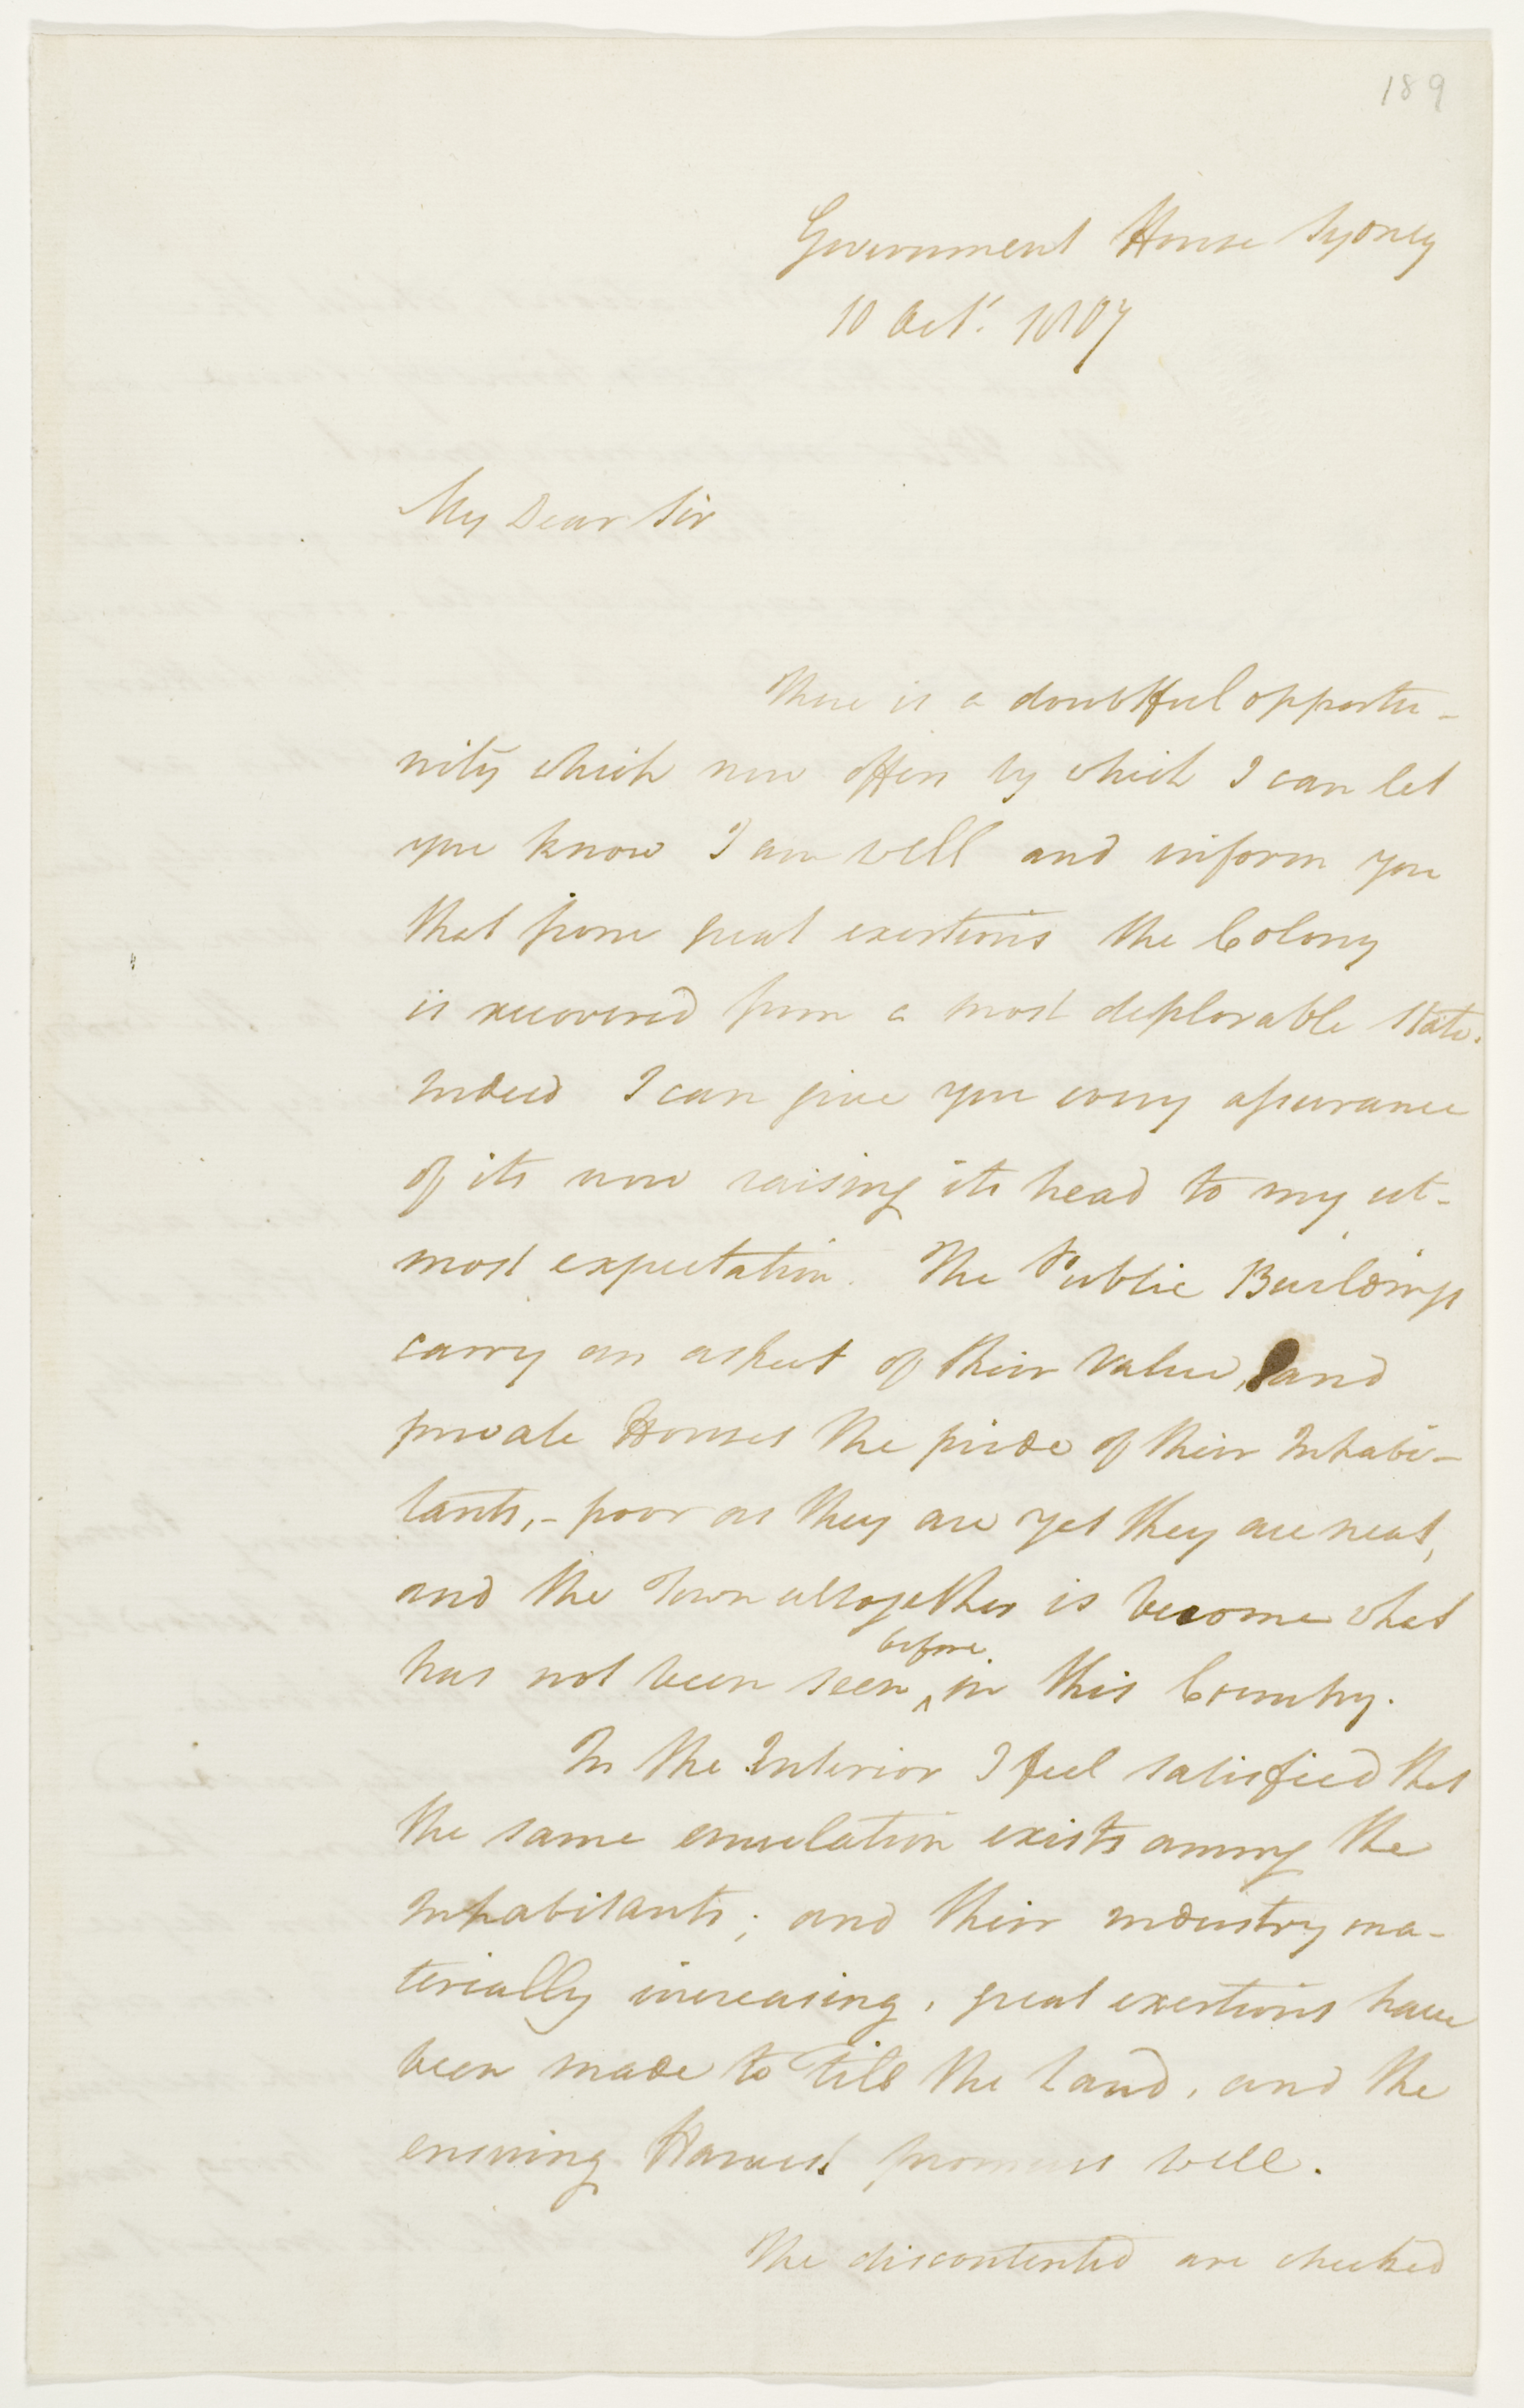 189
Government House Sydney
10 Octr. 1807
My Dear Sir
There is a doubtful opportu-
nity which now offers by which I can let
you know I am well and inform you
that from great exertions the Colony
is recovered from a most deplorable state.
Indeed I can give you every assurance
of its now raising its head to my ut-
most expectation. The Public Buildings
carry an aspect of their value, and
private Houses the pride of their Inhabi-
tants,- poor as they are yet they are neat,
and the Town altogether is become what
before
has not been seen ^ in this Country.
In the Interior I feel satisfied that
the same emulation exists among the
Inhabitants; and their industry ma-
terially increasing, great exertions have
been made to till the land, and the
ensuing Harvest promises well.
The discontented are checked